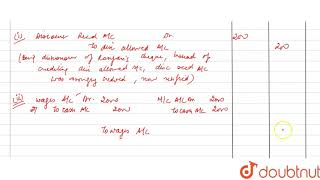 (i) Discount Recd A/c Dr. 200
To dis allowed A/c 200
(Being dishonour of Ranjan's cheque, instead of
crediting dis allowed A/c, disc recd A/c
was wrongly , now rectified)
(ii) Wages A/c Dr. 2000 M/c A/c Dr 2000
To cash A/c 2000 To cash A/c 2000
To wages A/c
doubtnut